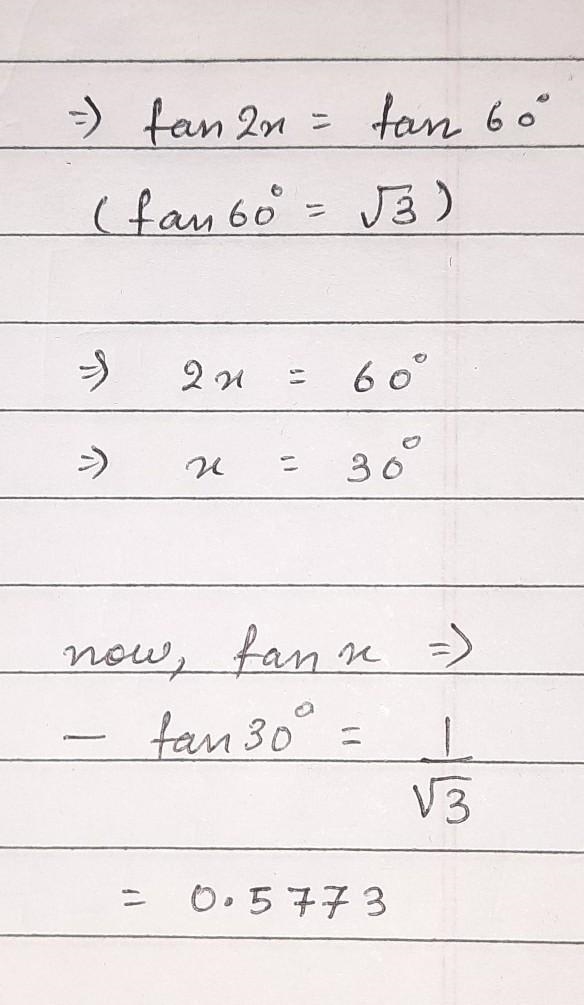 ⇒ tan 2x = tan 60°
(tan 60° = √3)
⇒ 2x = 60°
⇒ x = 30°
now, tan x ⇒
— tan 30° = 1/√3
= 0.5773